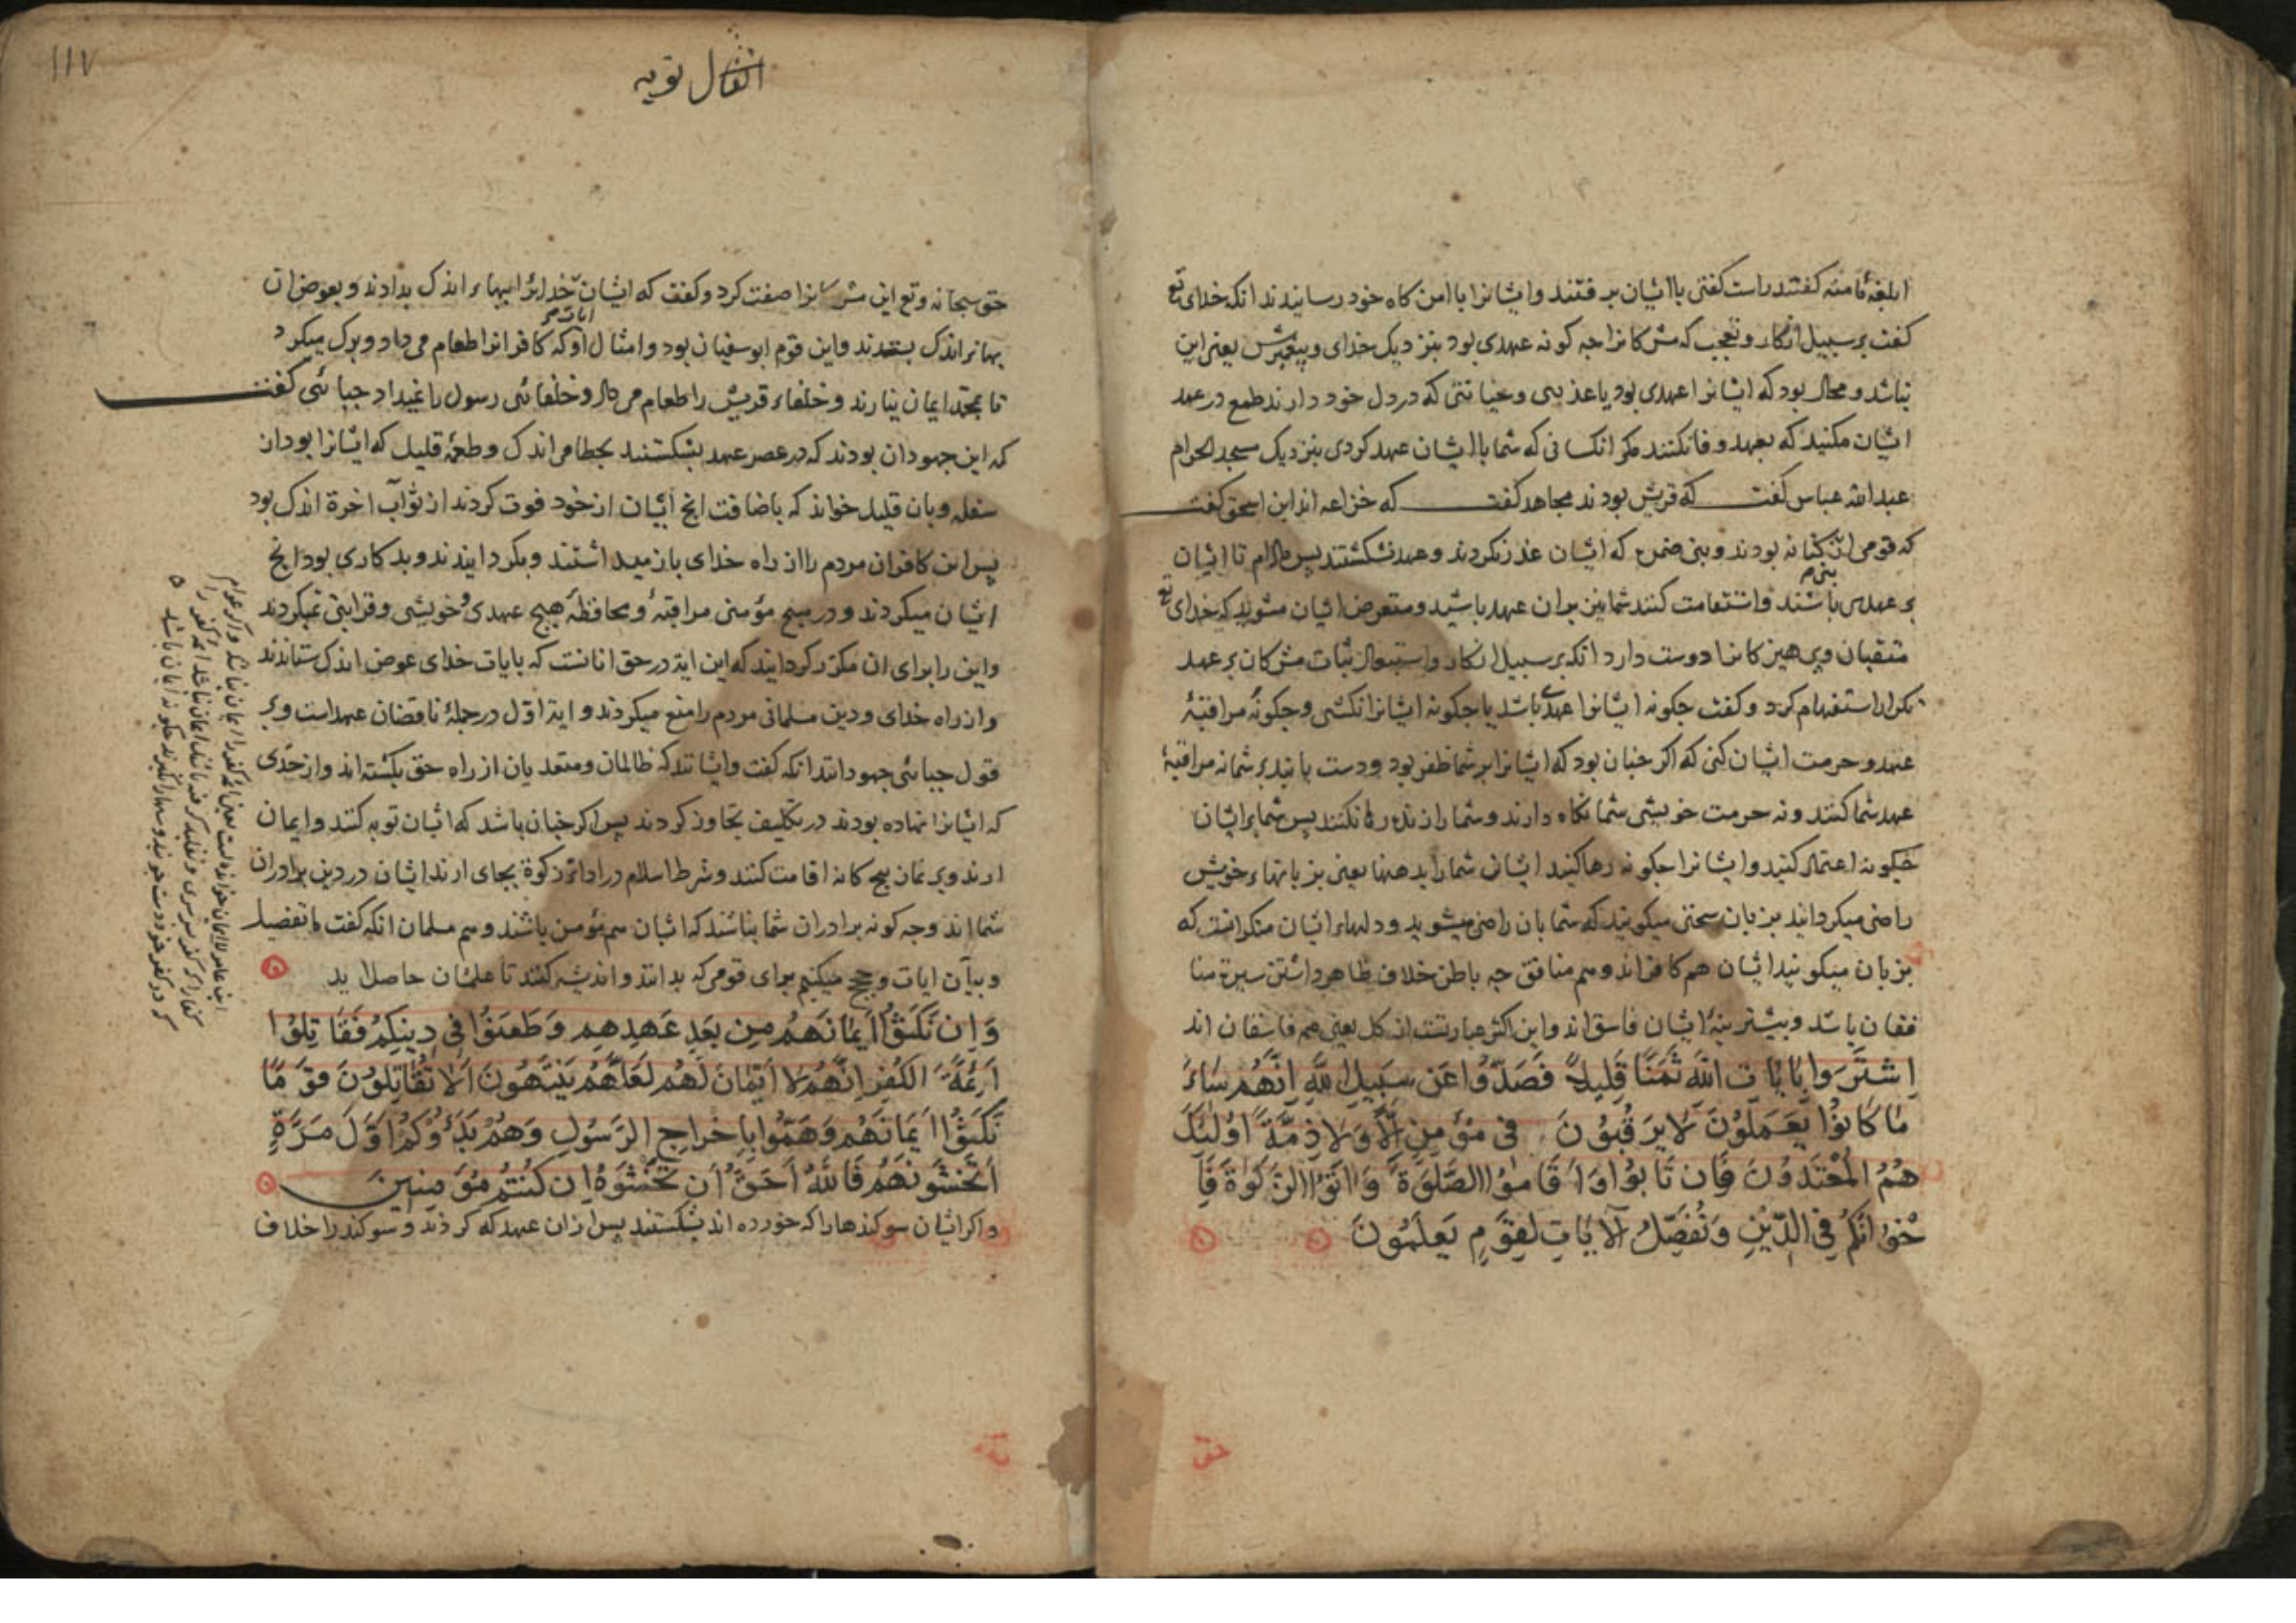 ابلغهٔ مامنه کفتند راست کفتی با ایشان برفتند و ایشانرا با امن کاه خود رسانیدند انکه خدای تع
کفت بر سبیل انکار و تعجب که مشرکانرا جه کونه عهدی بود بنزدیک خدای و پیغبرش یعنی این
نباشد و محال بود که ایشانرا عهدی بود با عذری و خیانتی که در دل خود دارند طمع در عهد
ایشان مکنید که بعهد وفا نکنند مکر انکسانی که شما با ایشان عهد کردی بنزدیک مسجد الحرام
عبدالله عباس کفت که قریش بودند مجاهد کفت که خزاعه اند ابن اسحق کفت
که قومی از کنانه بودند و بنی ضمره که ایشان عذر نکردند و عهد نشکستند پس مادام تا ایشان
بر عهد باشند و استقامت کنند شما نیز بران عهد باشید و متعرض ایشان مشوید که خدای تع
متقیان و پرهیزکانرا دوست دارد انکه بر سبیل انکار و استبعاد ثبات مشرکان بر عهد
تکرار استفهام کرد و کفت جکونه ایشانرا عهدی باشد یا جکونه ایشانرا نکشی و جکونه مراقبهٔ
عهد و حرمت ایشان کنی که اکر جنان بود که ایشانرا بر شما ظفر بود و دست یابند بر شما نه مراقبهٔ
عهد شما کنند و نه حرمت خویشی شما نکاه دارند و شما را زنده رها نکنند پس شما بر ایشان
جکونه اعتماد کنید و ایشانرا جکونه رها کنید ایشان شما را بدهنها یعنی بزبانهاء خویش
راضی میکردانید بزبان سخنی میکویند که شما بان راضی میشوید و دلهاء ایشان منکر انست که
بزبان میکویند ایشان هم کافراند و هم منافق جه باطن خلاف ظاهر داشتن سیرة منا
فقان باشد و بیشترینهٔ ایشان فاسق اند و این اکثر عبارتست از کل یعنی همه فاسقان اند
اِشْتَرَوا بِاٰيَاتِ اللّٰهِ ثَمَنًا قَلِيلاً فَصَدُّوا عَن سَبِيلِ اللّٰهِ اِنَّهُم سَاءَ
مَا كَانُوا يَعْمَلُونَ لَايَرقُبُونَ فِى مُؤْمِنٍ اِلّاً وَلَا ذِمَّةً اُولٰئِكَ
هُمُ المُعْتَدُونَ فَاِن تَابُوا وَاَقَامُوا الصَّلٰوةَ وَاٰتَوُا الزَّكٰوةَ فَاِ
خْوَانُكُم فِى الدِّيْنِ وَنُفَصِّلُ الْاٰيَاتِ لِقَوْمٍ يَعلَمُونَ
۱۱۷
انفال توبه
حق سبحانه و تع این مشرکانرا صفت کرد و کفت که ایشان خدایرا ببهاء اندک بدادند و بعوض ان
بهاء اندک بستدند و این قوم ابوسفیان بود و امثال او که کافرانرا طعام می داد و برک میکرد
تا بمحمد ایمان نیارند و خلفاء قریش را طعام می داد و خلفائی رسول را نمیداد جبائی کفت
که این جهودان بودند که در عصر عهد بشکستند بحطام اندک و طعمهٔ قلیل که ایشانرا بود ان
سفله و بان قلیل خواند که باضافت انج ایشان از خود فوت کردند از ثواب اخرة اندک بود
پس این کافران مردم را از راه خدای باز میداشتند و بکردایندند و بد کاری بود انج
ایشان میکردند و در هیج مؤمنی مراقبهٔ و محافظهٔ هیج عهدی و خویشی و قرابتی نمیکردند
و این را برای ان مکرر کردانید که این ایة در حق انانست که بایات خدای عوض اندک ستانند
و از راه خدای و دین مسلمانی مردم را منع میکردند و ایة اول در جملهٔ ناقضان عهد است و بر
قول جبائی جهودانند انکه کفت و ایشانند که ظالمان و متعدیان از راه حق بکشته اند و از حدی
که ایشانرا نهاده بودند در تکلیف تجاوز کردند پس اکر جنان باشد که ایشان توبه کنند و ایمان
ارند و بر نمان پنج کانه اقامت کنند و شرط اسلام در ادائ زکوة بجای ارند ایشان در دین برادران
شما اند و جه کونه برادران شما نباشند که ایشان هم مؤمن باشند و هم مسلمان انکه کفت ما تفصیل
و بیان ایات و حجج میکنیم برای قومی که بدانند و اندیشه کنند تا علمشان حاصل اید
وَاِن نَّكَثُوا اَيمَانَهُم مِن بَعدِ عَهدِهِم وَطَعَنُوا فِى دِينِكُم فَقَاتِلُوا
اَئِمَّةَ الكُفرِ اِنَّهُم لَا اَيْمَانَ لَهُم لَعَلَّهُم يَنْتَهُونَ اَلَا تُقَاتِلُونَ قَوْمًا
نَكَثُوا اَيمَانَهُم وَهَمُّوا بِاِخْرَاجِ الرَّسُولِ وَهُم بَدَؤُكُم اَوَّلَ مَرَّةٍ
اَتَخْشَونَهُم فَاللّٰهُ اَحَقُّ اَن تَخْشَوهُ اِن كُنتُم مُؤمِنِينَ
و اکر ایشان سوکندها را که خورده اند بشکستند پس از ان عهد که کردند و سوکند را خلاف